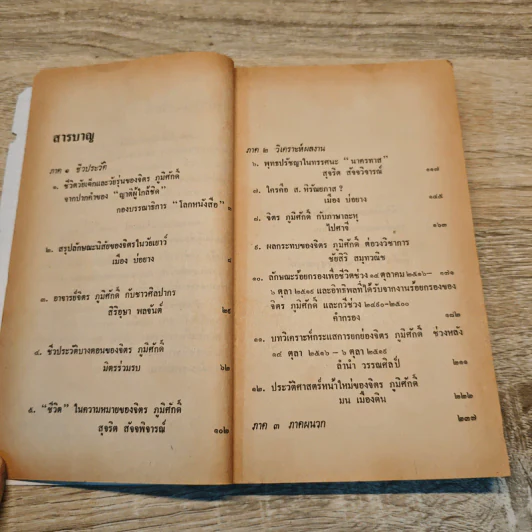 สารบาญ
ภาค ๑ ชีวประวัติ
๑. ชีวิตวัยเด็กและวัยรุ่นของจิตร ภูมิศักดิ์
จากปากคำของ “ญาติผู้ใกล้ชิด”
กองบรรณาธิการ “โลกหนังสือ”
๒. สรุปลักษณะนิสัยของจิตรในวัยเยาว์
เมือง บ่อยาง
๓. อาจารย์จิตร ภูมิศักดิ์ กับชาวศิลปากร
สิริอุษา พลจันต์ ๒๕
๔. ชีวประวัติบางตอนของจิตร ภูมิศักดิ์
มิตรร่วมรบ ๖๒
๕. “ชีวิต” ในความหมายของจิตร ภูมิศักดิ์
สุจริต สัจจพิจารณ์ ๑๐๒
ภาค ๒ วิเคราะห์ผลงาน
๖. พุทธปรัชญาในทรรศนะ “นาครทาส”
สุจริต สัจจวิจารณ์ ๑๑๗
๗. ใครคือ ส. หิรัณยภาส ?
เมือง บ่อยาง ๑๔๕
๘. จิตร ภูมิศักดิ์ กับภาษาละหุ
ไปศาจี ๑๖๓
๙. ผลกระทบของจิตร ภูมิศักดิ์ ต่อวงวิชาการ
ชัยสิริ สมุทวณิช
๑๐. ลักษณะร้อยกรองเพื่อชีวิตช่วง ๑๔ ตุลาคม ๒๕๑๖– ๑๗๑
๖ ตุลา ๒๕๑๙ และอิทธิพลที่ได้รับจากงานร้อยกรองของ
จิตร ภูมิศักดิ์ และกวีช่วง ๒๔๙๐–๒๕๐๐
คำกรอง ๑๘๒
๑๑. บทวิเคราะห์กระแสการยกย่องจิตร ภูมิศักดิ์ ช่วงหลัง
๑๔ ตุลา ๒๕๑๖ – ๖ ตุลา ๒๕๑๙
ลำนำ วรรณศิลป์ ๒๑๑
๑๒. ประวัติศาสตร์หน้าใหม่ของจิตร ภูมิศักดิ์
มน เมืองดิน ๒๒๒
ภาค ๓ ภาคผนวก ๒๓๗